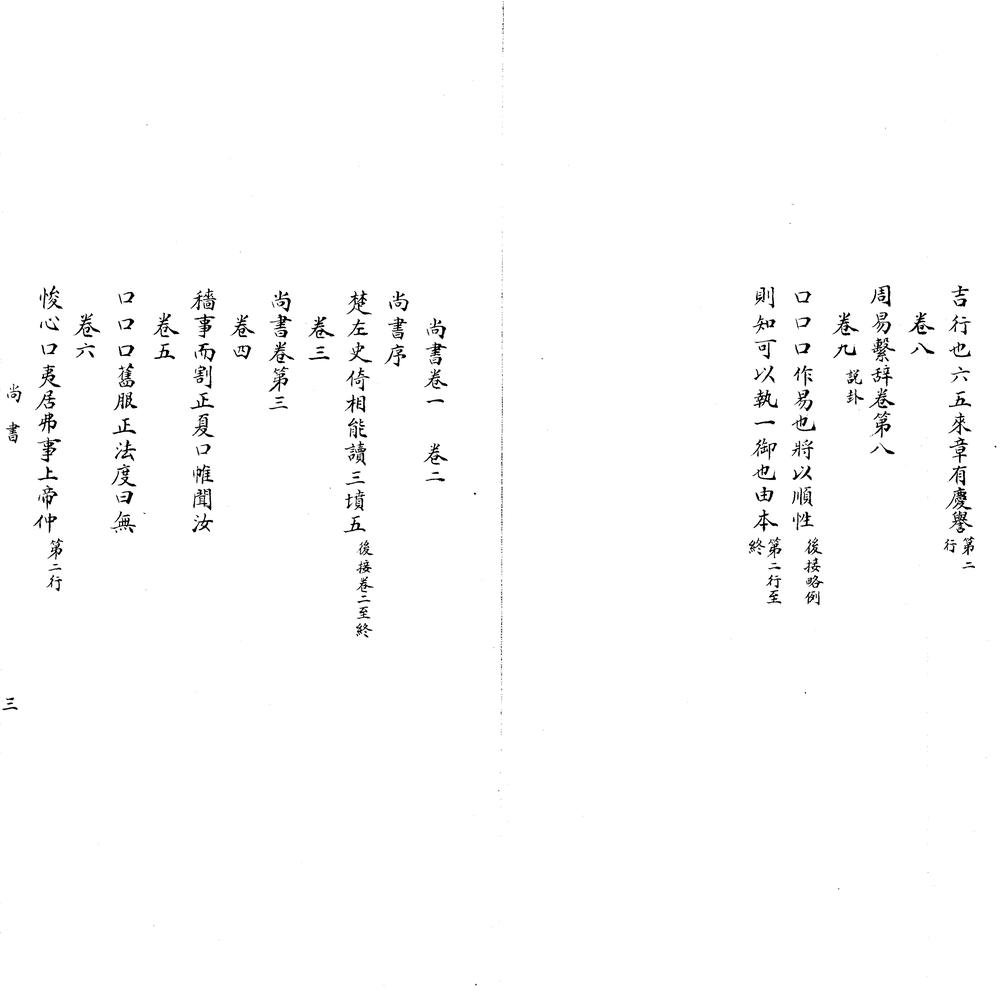 吉行也六五來章有慶譽第二行
卷八
周易繫辞卷第八
卷九 説卦
口口口作易也將以順性後接略例
則知可以執一御也由本第二行至終
尚書卷一 卷二
尚書序
楚左史倚相能讀三墳五後接卷二至終
卷三
尚書卷第三
卷四
穡事而割正夏口惟聞汝
卷五
口口口舊服正法度曰無
卷六
悛心口夷居弗事上帝仲第二行
尚書
三